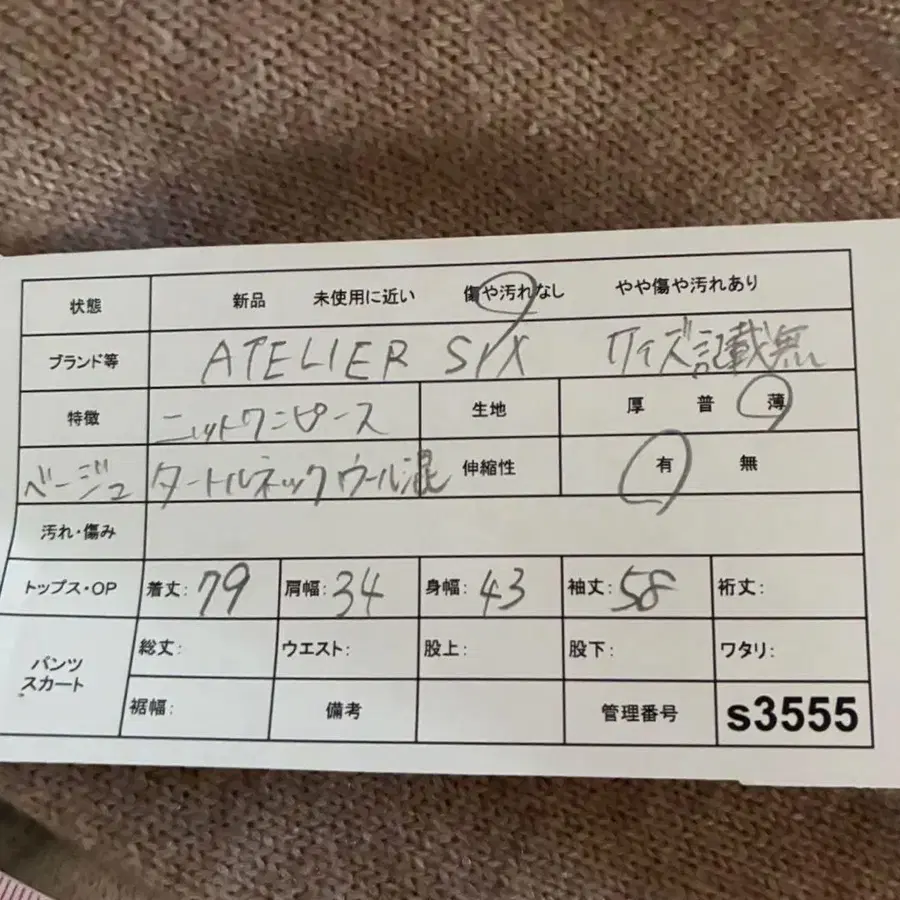 状態 新品 未使用に近い 傷や汚れなし やや傷や汚れあり
ブランド等 ATELIER SIX サイズ記載無
特徴 ニットワンピース 生地 厚 普 薄
ベージュ タートルネック ウール混 伸縮性 有 無
汚れ・傷み
トップス・OP 着丈:79 肩幅:34 身幅:43 袖丈:58 裄丈:
パンツ スカート 総丈: ウエスト: 股上: 股下: ワタリ:
裾幅: 備考 管理番号 s3555